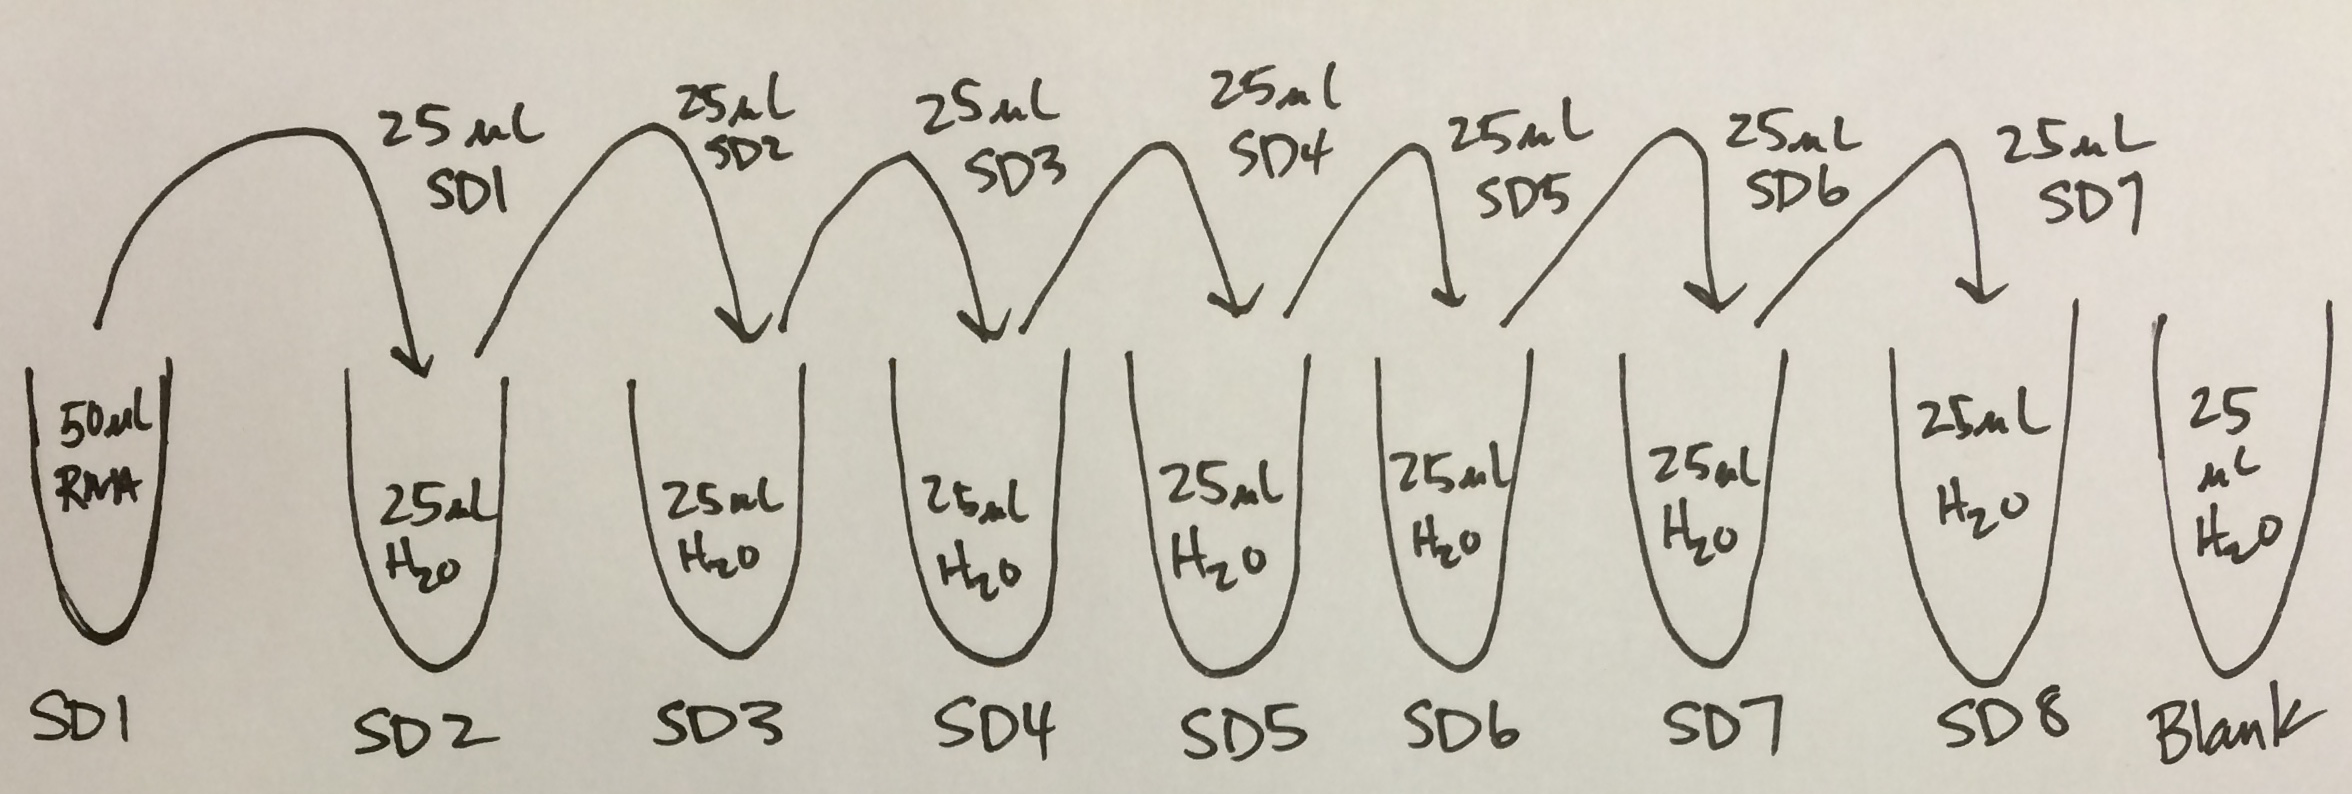 25 µL
SD1
25µL
SD2
25µL
SD3
25µL
SD4
25µL
SD5
25µL
SD6
25µL
SD7
50µL
RNA
25µL
H2O
25µL
H2O
25µL
H2O
25µL
H2O
25µL
H2O
25µL
H2O
25µL
H2O
25
µL
H2O
SD1
SD2
SD3
SD4
SD5
SD6
SD7
SD8
Blank